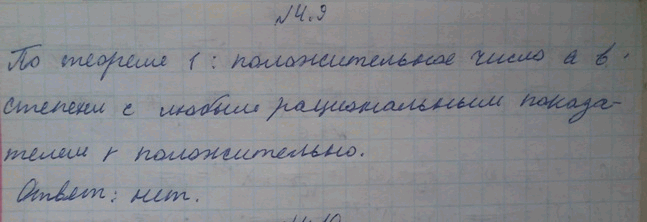 №4.9
По теореме 1: положительное число a в
степени с любым рациональным показа-
телем r положительно.
Ответ: нет.